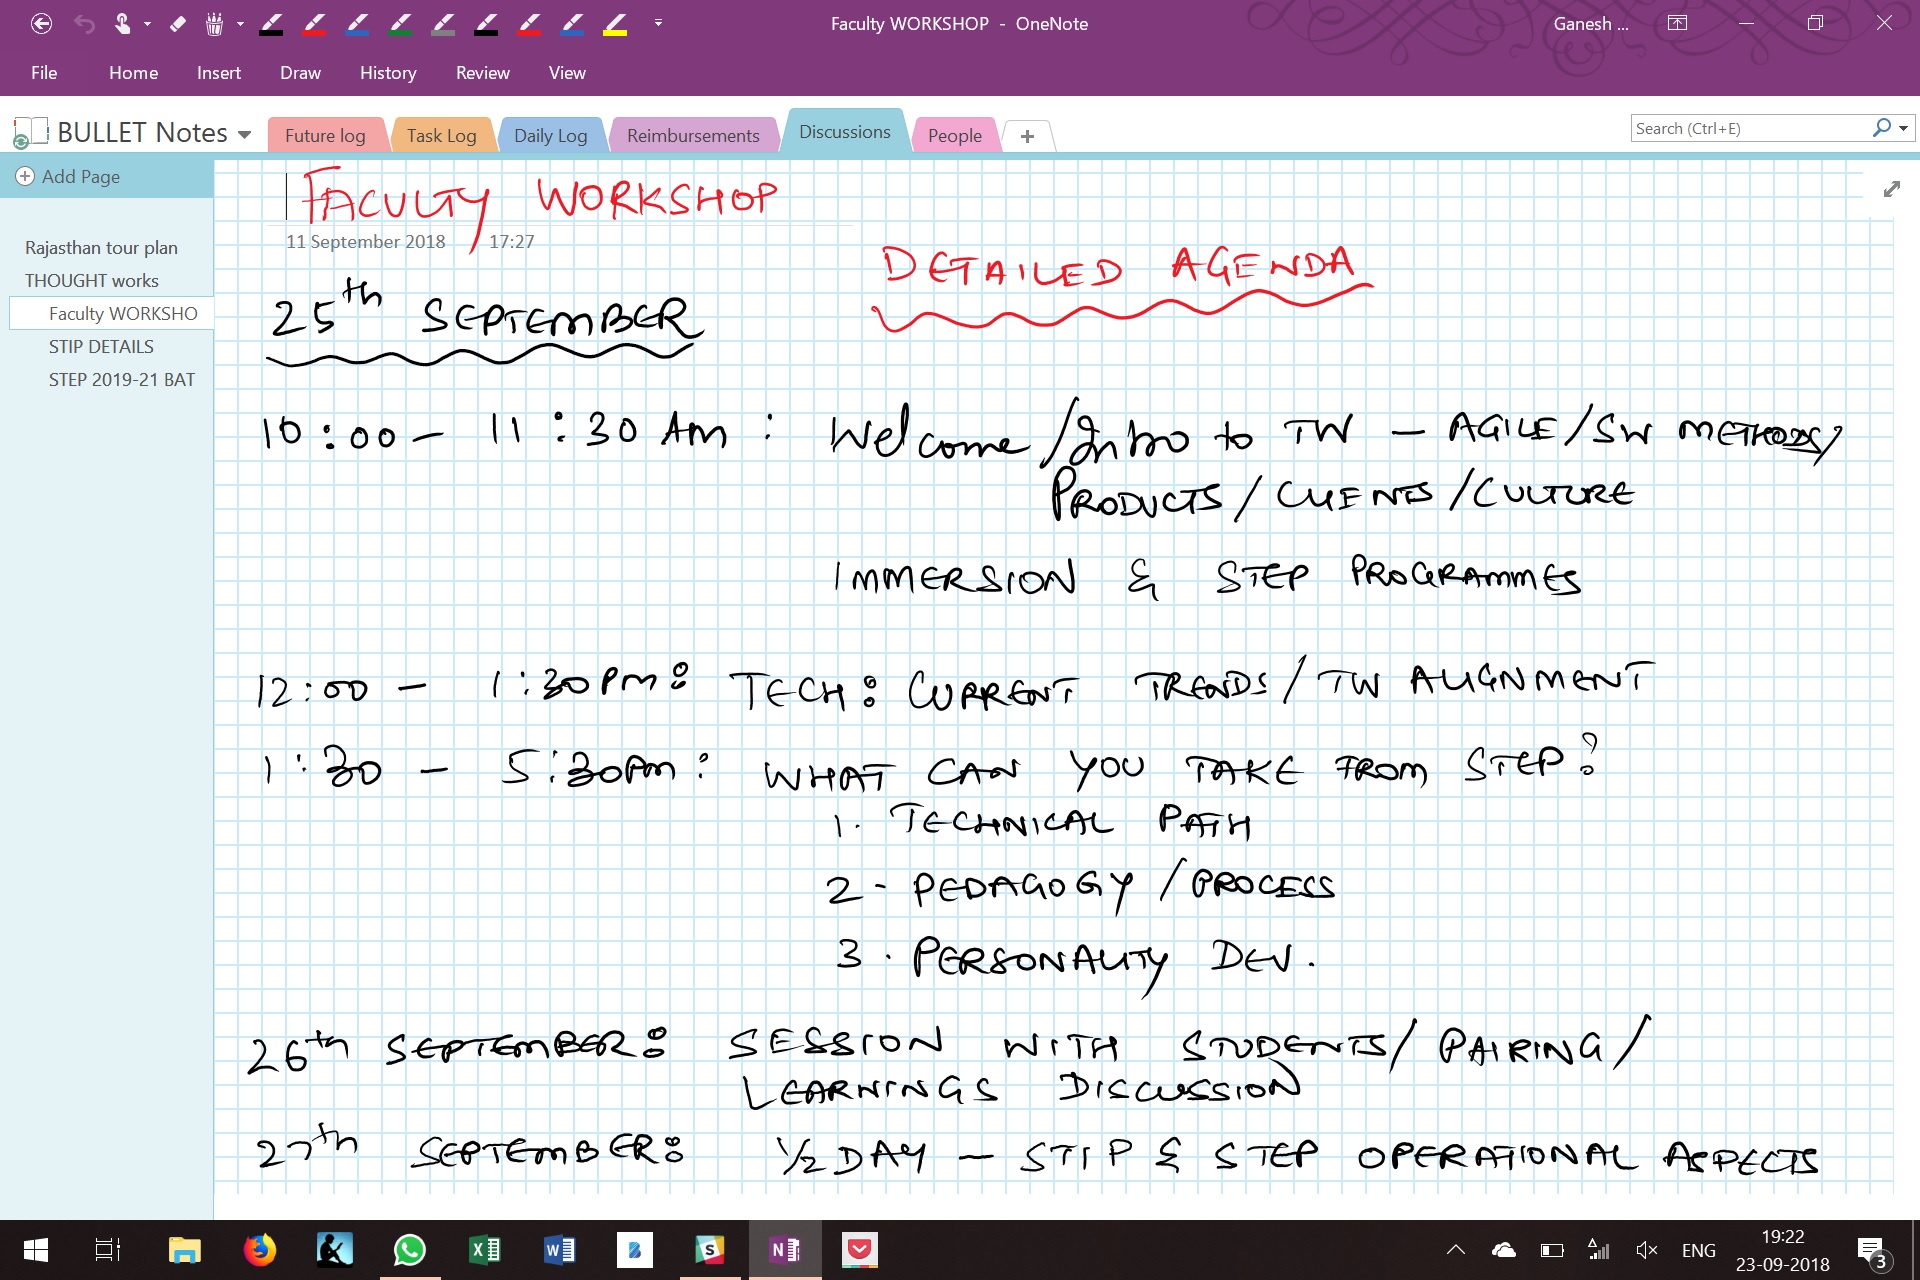 Faculty WORKSHOP - OneNote
Ganesh ...
File Home Insert Draw History Review View
BULLET Notes
Future log Task Log Daily Log Reimbursements Discussions People +
Search (Ctrl+E)
Add Page
Rajasthan tour plan
THOUGHT works
Faculty WORKSHO
STIP DETAILS
STEP 2019-21 BAT
FACULTY WORKSHOP
11 September 2018 17:27
DETAILED AGENDA
25th SEPTEMBER
10:00 - 11:30 AM : Welcome/Intro to TW - AGILE/SW METHODS/
PRODUCTS/CLIENTS/CULTURE
IMMERSION & STEP PROGRAMMES
12:00 - 1:30PM: TECH: CURRENT TRENDS/TW ALIGNMENT
1:30 - 5:30PM: WHAT CAN YOU TAKE FROM STEP?
1. TECHNICAL PATH
2- PEDAGOGY/PROCESS
3. PERSONALITY DEV.
26th SEPTEMBER: SESSION WITH STUDENTS/PAIRING/
LEARNINGS DISCUSSION
27th SEPTEMBER: 1/2 DAY - STIP & STEP OPERATIONAL ASPECTS
ENG
19:22
23-09-2018
3